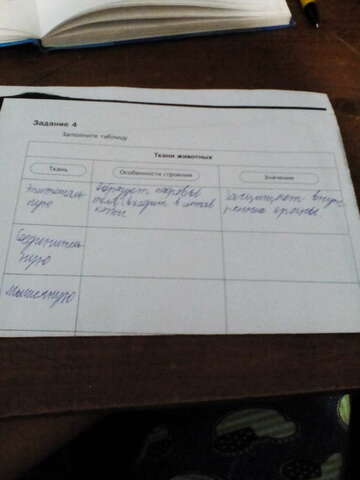 Задание 4
Заполните таблицу
Ткани животных
Ткань
Особенности строения
Значение
Образует покровы
тела, входит в состав
кожи
Защищает внут
ренние органы
Соединитель
ную
Мышечную